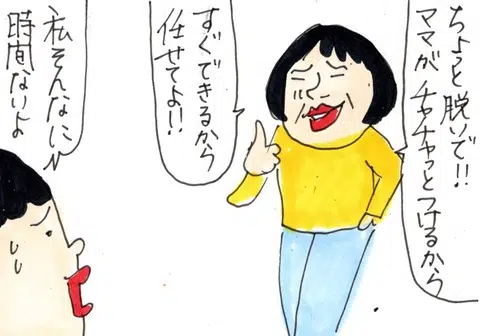 ちょっと脱いで!!
ママがチャチャっとつけるから
すぐできるから
任せてよ!!
私そんなに
時間ないよ